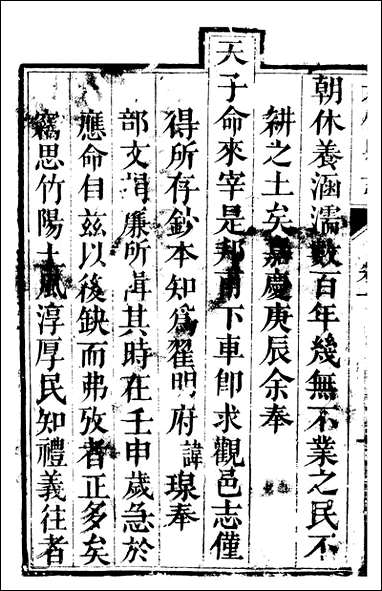 朝休養涵濡數百年幾無不業之民不
耕之土矣嘉慶庚辰余奉
天子命來宰是邦甫下車卽求觀邑志僅
得所存鈔本知爲翟明府諱琅奉
部文開廉所輯其時在壬申歲急於
應命自茲以後缺而弗攷者正多矣
竊思竹陽土風淳厚民知禮義往者